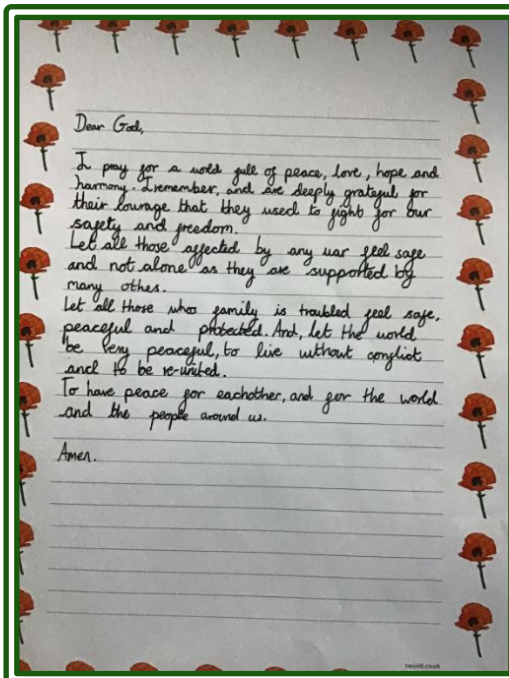 Dear God,
I pray for a world full of peace, love, hope and
harmony. I remember, and are deeply grateful for
their courage that they used to fight for our
safety and freedom.
Let all those affected by any war feel safe
and not alone as they are supported by
many othes.
Let all those who family is troubled feel safe,
peaceful and protected. And, let the world
be very peaceful, to live without conflict
and to be re-united.
To have peace for eachother, and for the world
and the people around us.
Amen.
twinkl.co.uk